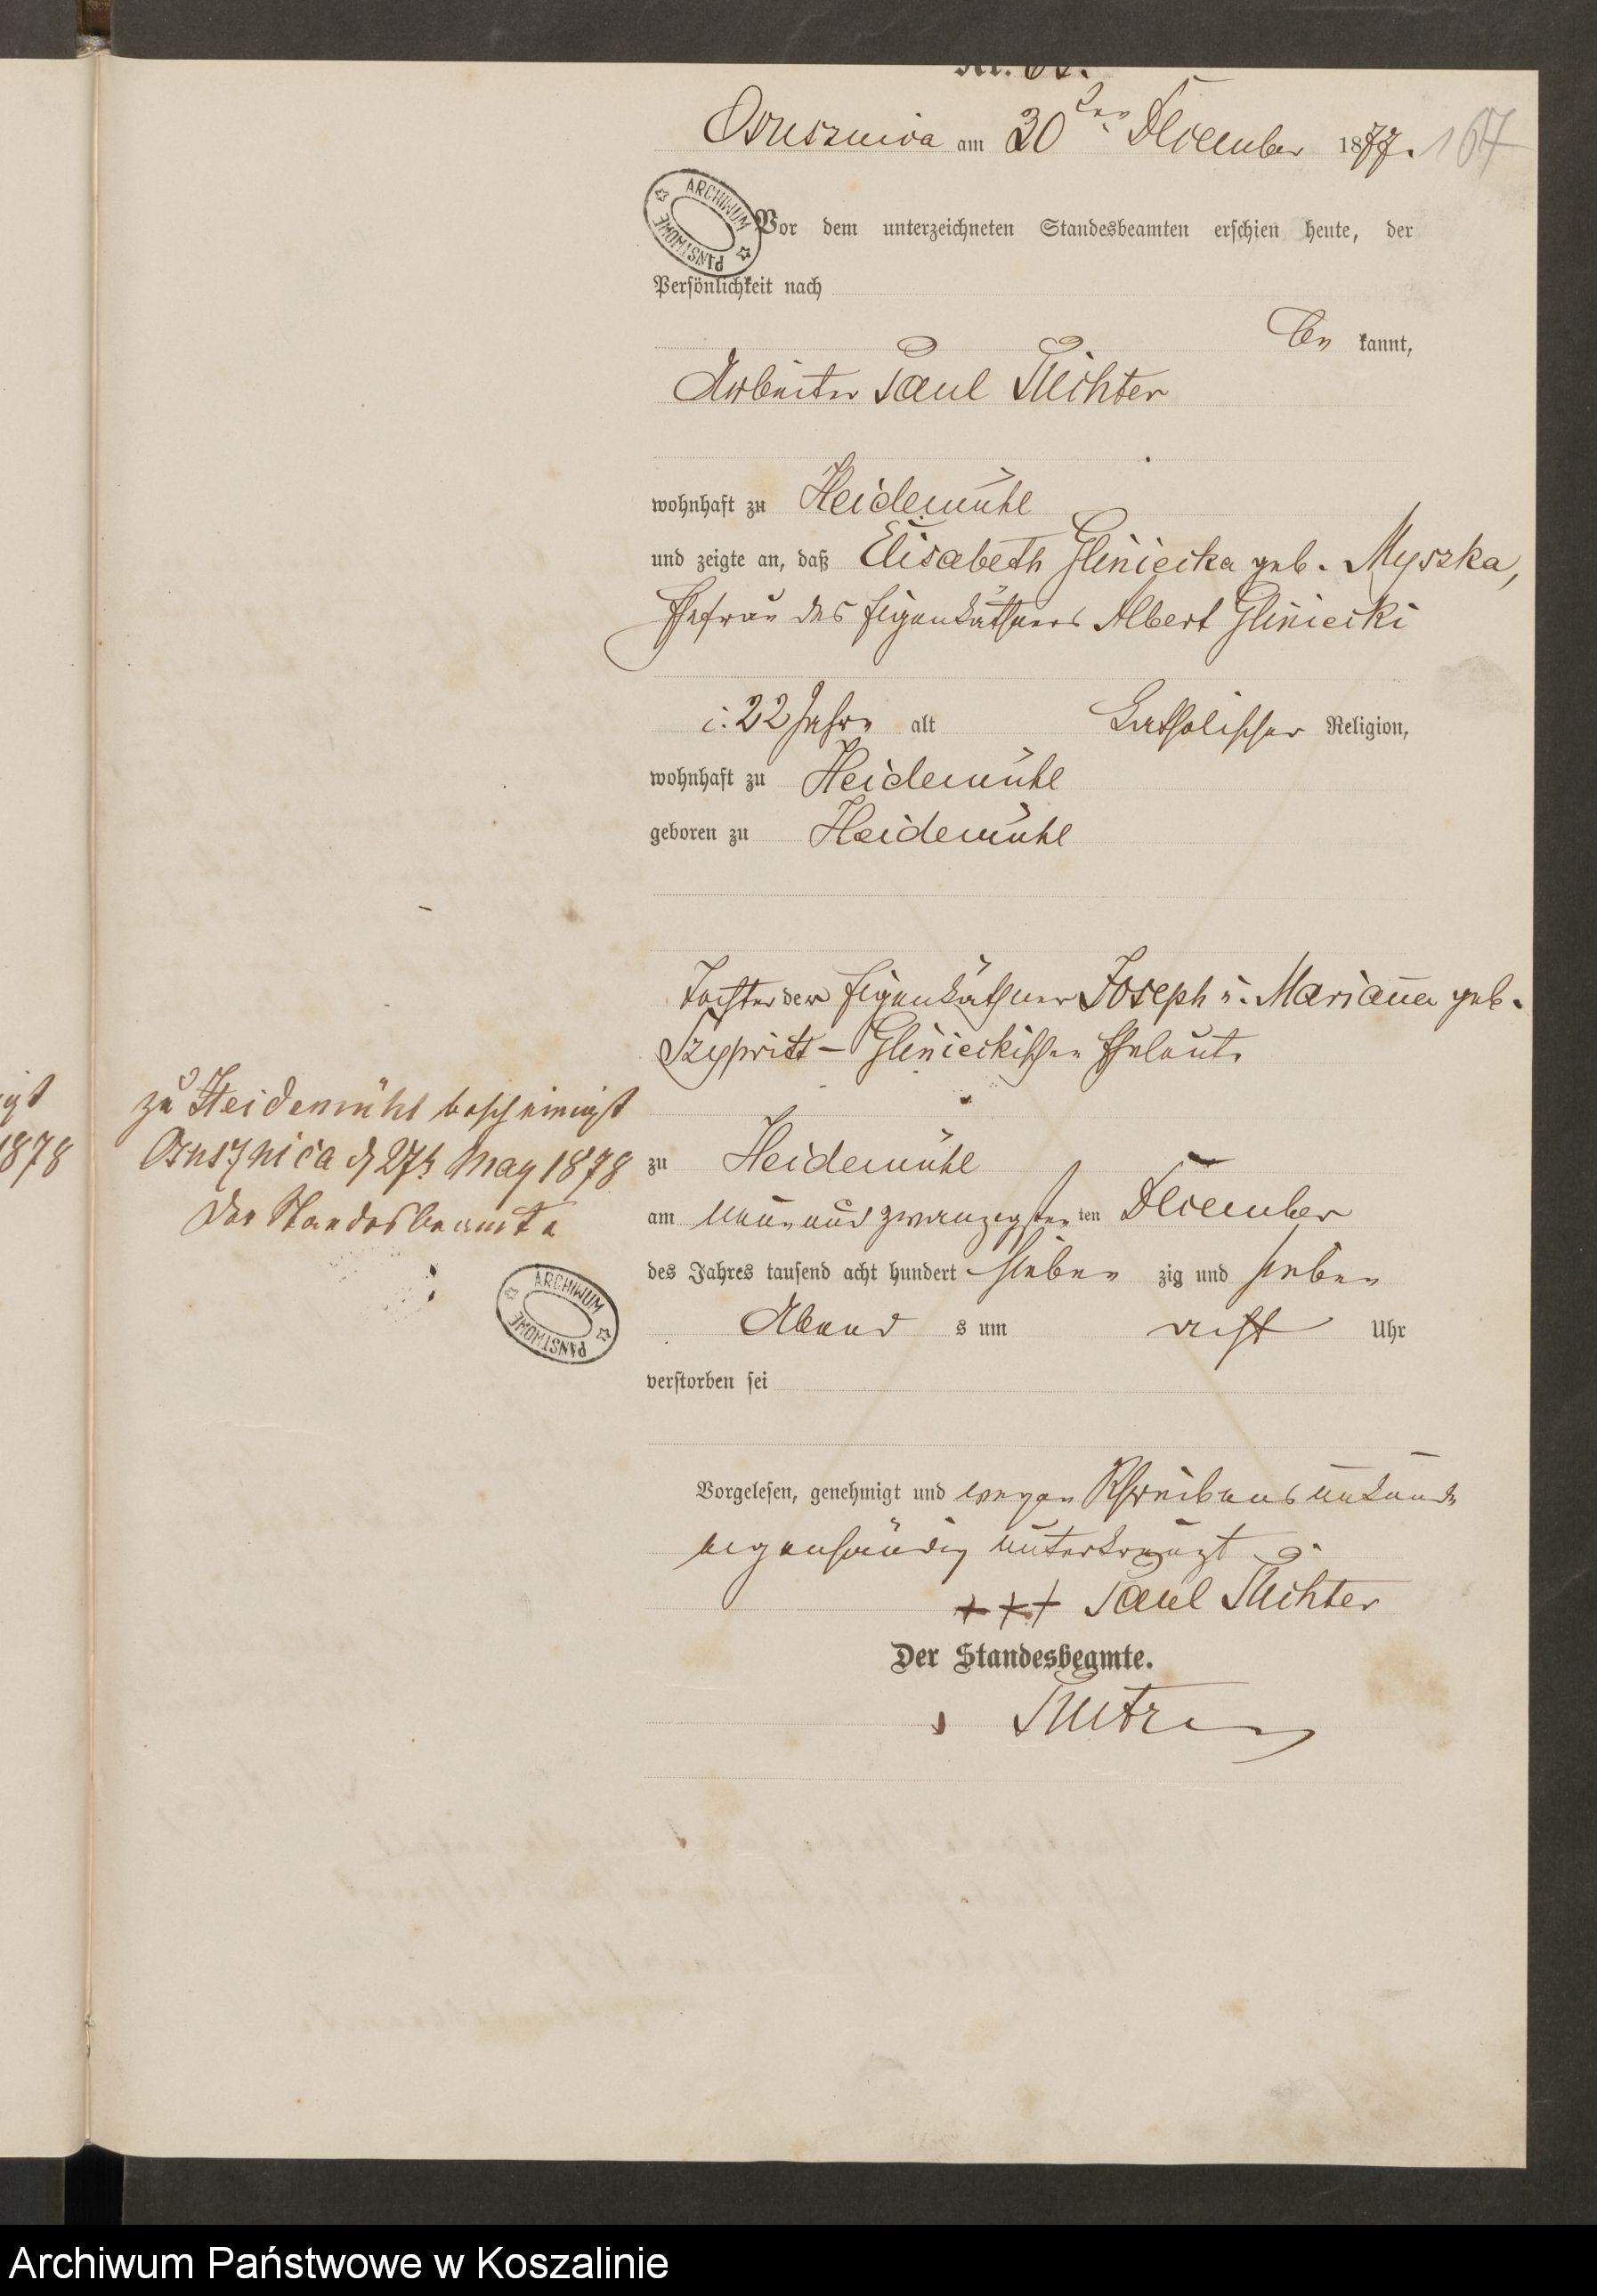 Osusznica am 30ten December 1877.
167
ARCHIWUM PAŃSTWOWE
Vor dem unterzeichneten Standesbeamten erschien heute, der
Persönlichkeit nach
be kannt,
Arbeiter Paul Richter
wohnhaft zu Heidemühl
und zeigte an, daß Elisabeth Gliniecka geb. Myszka,
Ehefrau des Eigenkäthners Albert Gliniecki
22 Jahre alt katholischer Religion,
wohnhaft zu Heidemühl
geboren zu Heidemühl
Tochter der Eigenkäthner Joseph u. Marianna geb.
Glinieckischen Eheleute
zu Heidemühl
am neun und zwanzigsten ten December
des Jahres tausend acht hundert sieben zig und sieben
Abend s um acht Uhr
verstorben sei
Vorgelesen, genehmigt und wegen Schreibensunkunde
eigenhändig unterkreuzt
+++ Paul Richter
Der Standesbeamte.
igt
1878
zu Heidemühl bescheinigt
Osusznica d 27t May 1878
Der Standesbeamte
ARCHIWUM PAŃSTWOWE
Archiwum Państwowe w Koszalinie